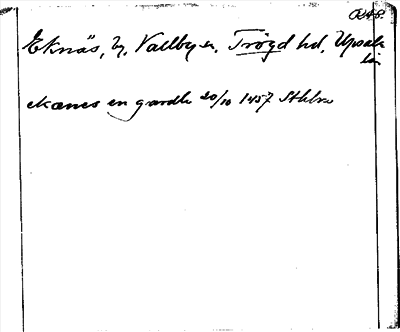 Eknäs, by, Vallby sn. Trøgd hd, Upsala
län
ekænes en gardh 20/10 1457 Sthlm